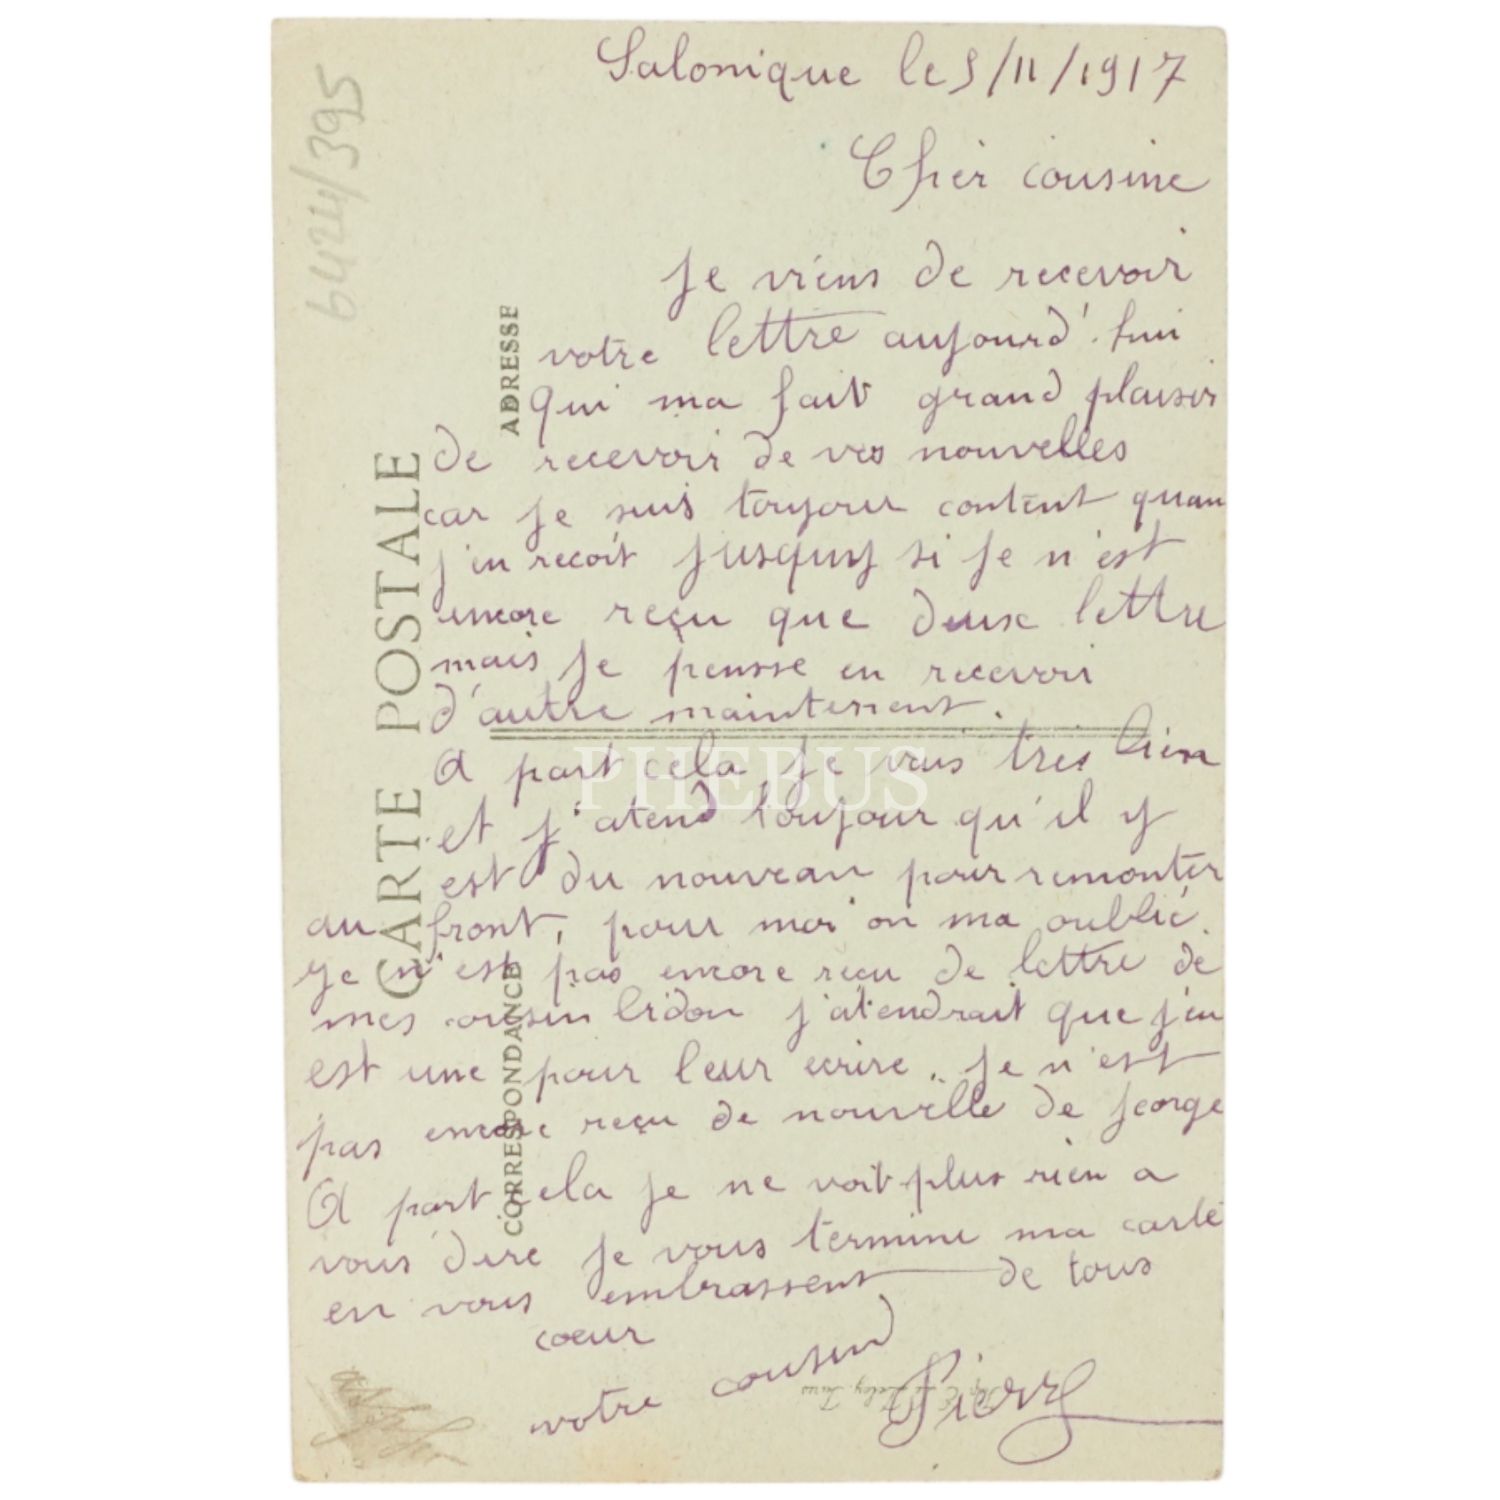 Salonique le 5/11/1917
Cher cousine
Je viens de recevoir
votre lettre aujourd'hui
qui ma fait grand plaisir
de recevoir de vos nouvelles
car je suis toujour content quan
j'en recoit jusqu'y si je n'est
encore reçu que deux lettre
mais je pensse en recevoir
d'autre maintenent.
A part cela je vais tres bien
et j'atend toujour qu'il y
est du nouveau pour remonter
au front, pour moi on ma oublié.
je n'est pas encore reçu de lettre de
mes cousin j'atendrait que j'en
est une pour leur ecrire. je n'est
pas encore reçu de nouvelle de jeorge
A part cela je ne voit plus rien a
vous dire je vous termine ma carte
en vous embrassent de tous
coeur
votre cousin
Pierre
CARTE POSTALE
ADRESSE
CORRESPONDANCE
6424/395
PHEBUS